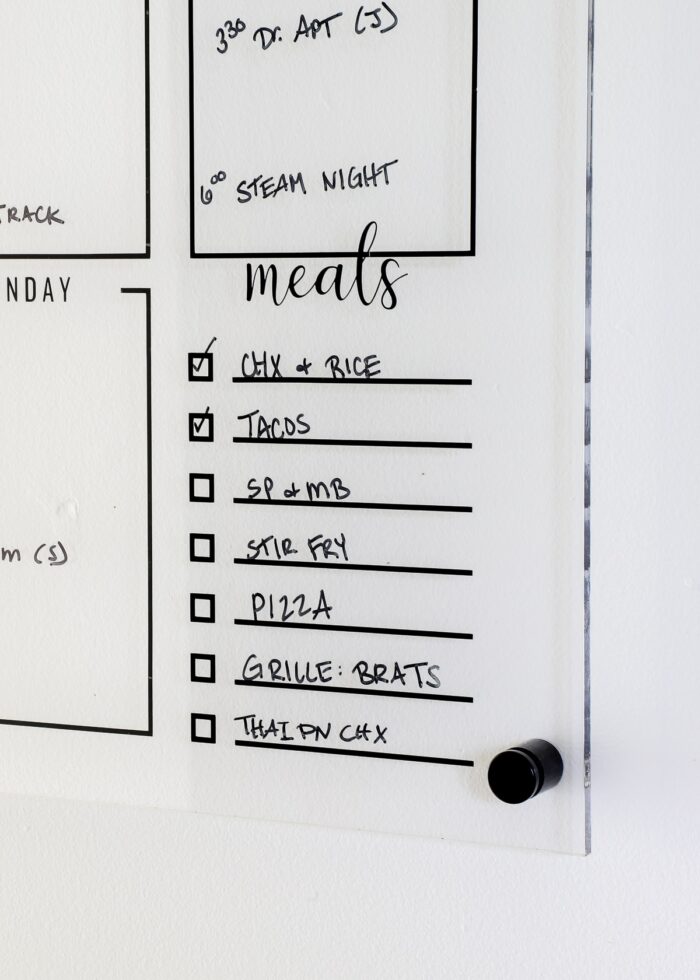 3³⁰ Dr. APT (J)
6⁰⁰ STEAM NIGHT
TRACK
NDAY
m (S)
meals
CHX & RICE
TACOS
SP & MB
STIR FRY
PIZZA
GRILLE: BRATS
THAI PN CHX